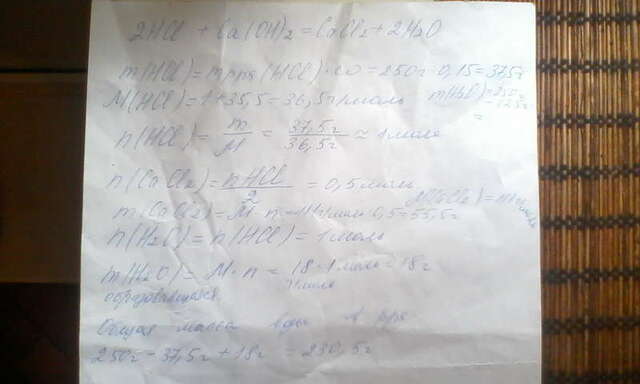 2HCl + Ca(OH)₂ = CaCl₂ + 2H₂O
m(HCl) = mр-ра(HCl)·ω = 250г · 0,15 = 37,5г
M(HCl) = 1 + 35,5 = 36,5г/моль m(H₂O) = 250г
n(HCl) = m/M = 37,5г/36,5г ≈ 1 моль
n(CaCl₂) = nHCl/2 = 0,5 моль
m(CaCl₂) = M · n = 111г/моль · 0,5 = 55,5г M(CaCl₂) = 111г/моль
n(H₂O) = n(HCl) = 1 моль
m(H₂O) = M · n = 18 · 1 моль = 18г
образовавшаяся г/моль
Общая масса воды в р-ре
250г - 37,5г + 18г = 230,5г